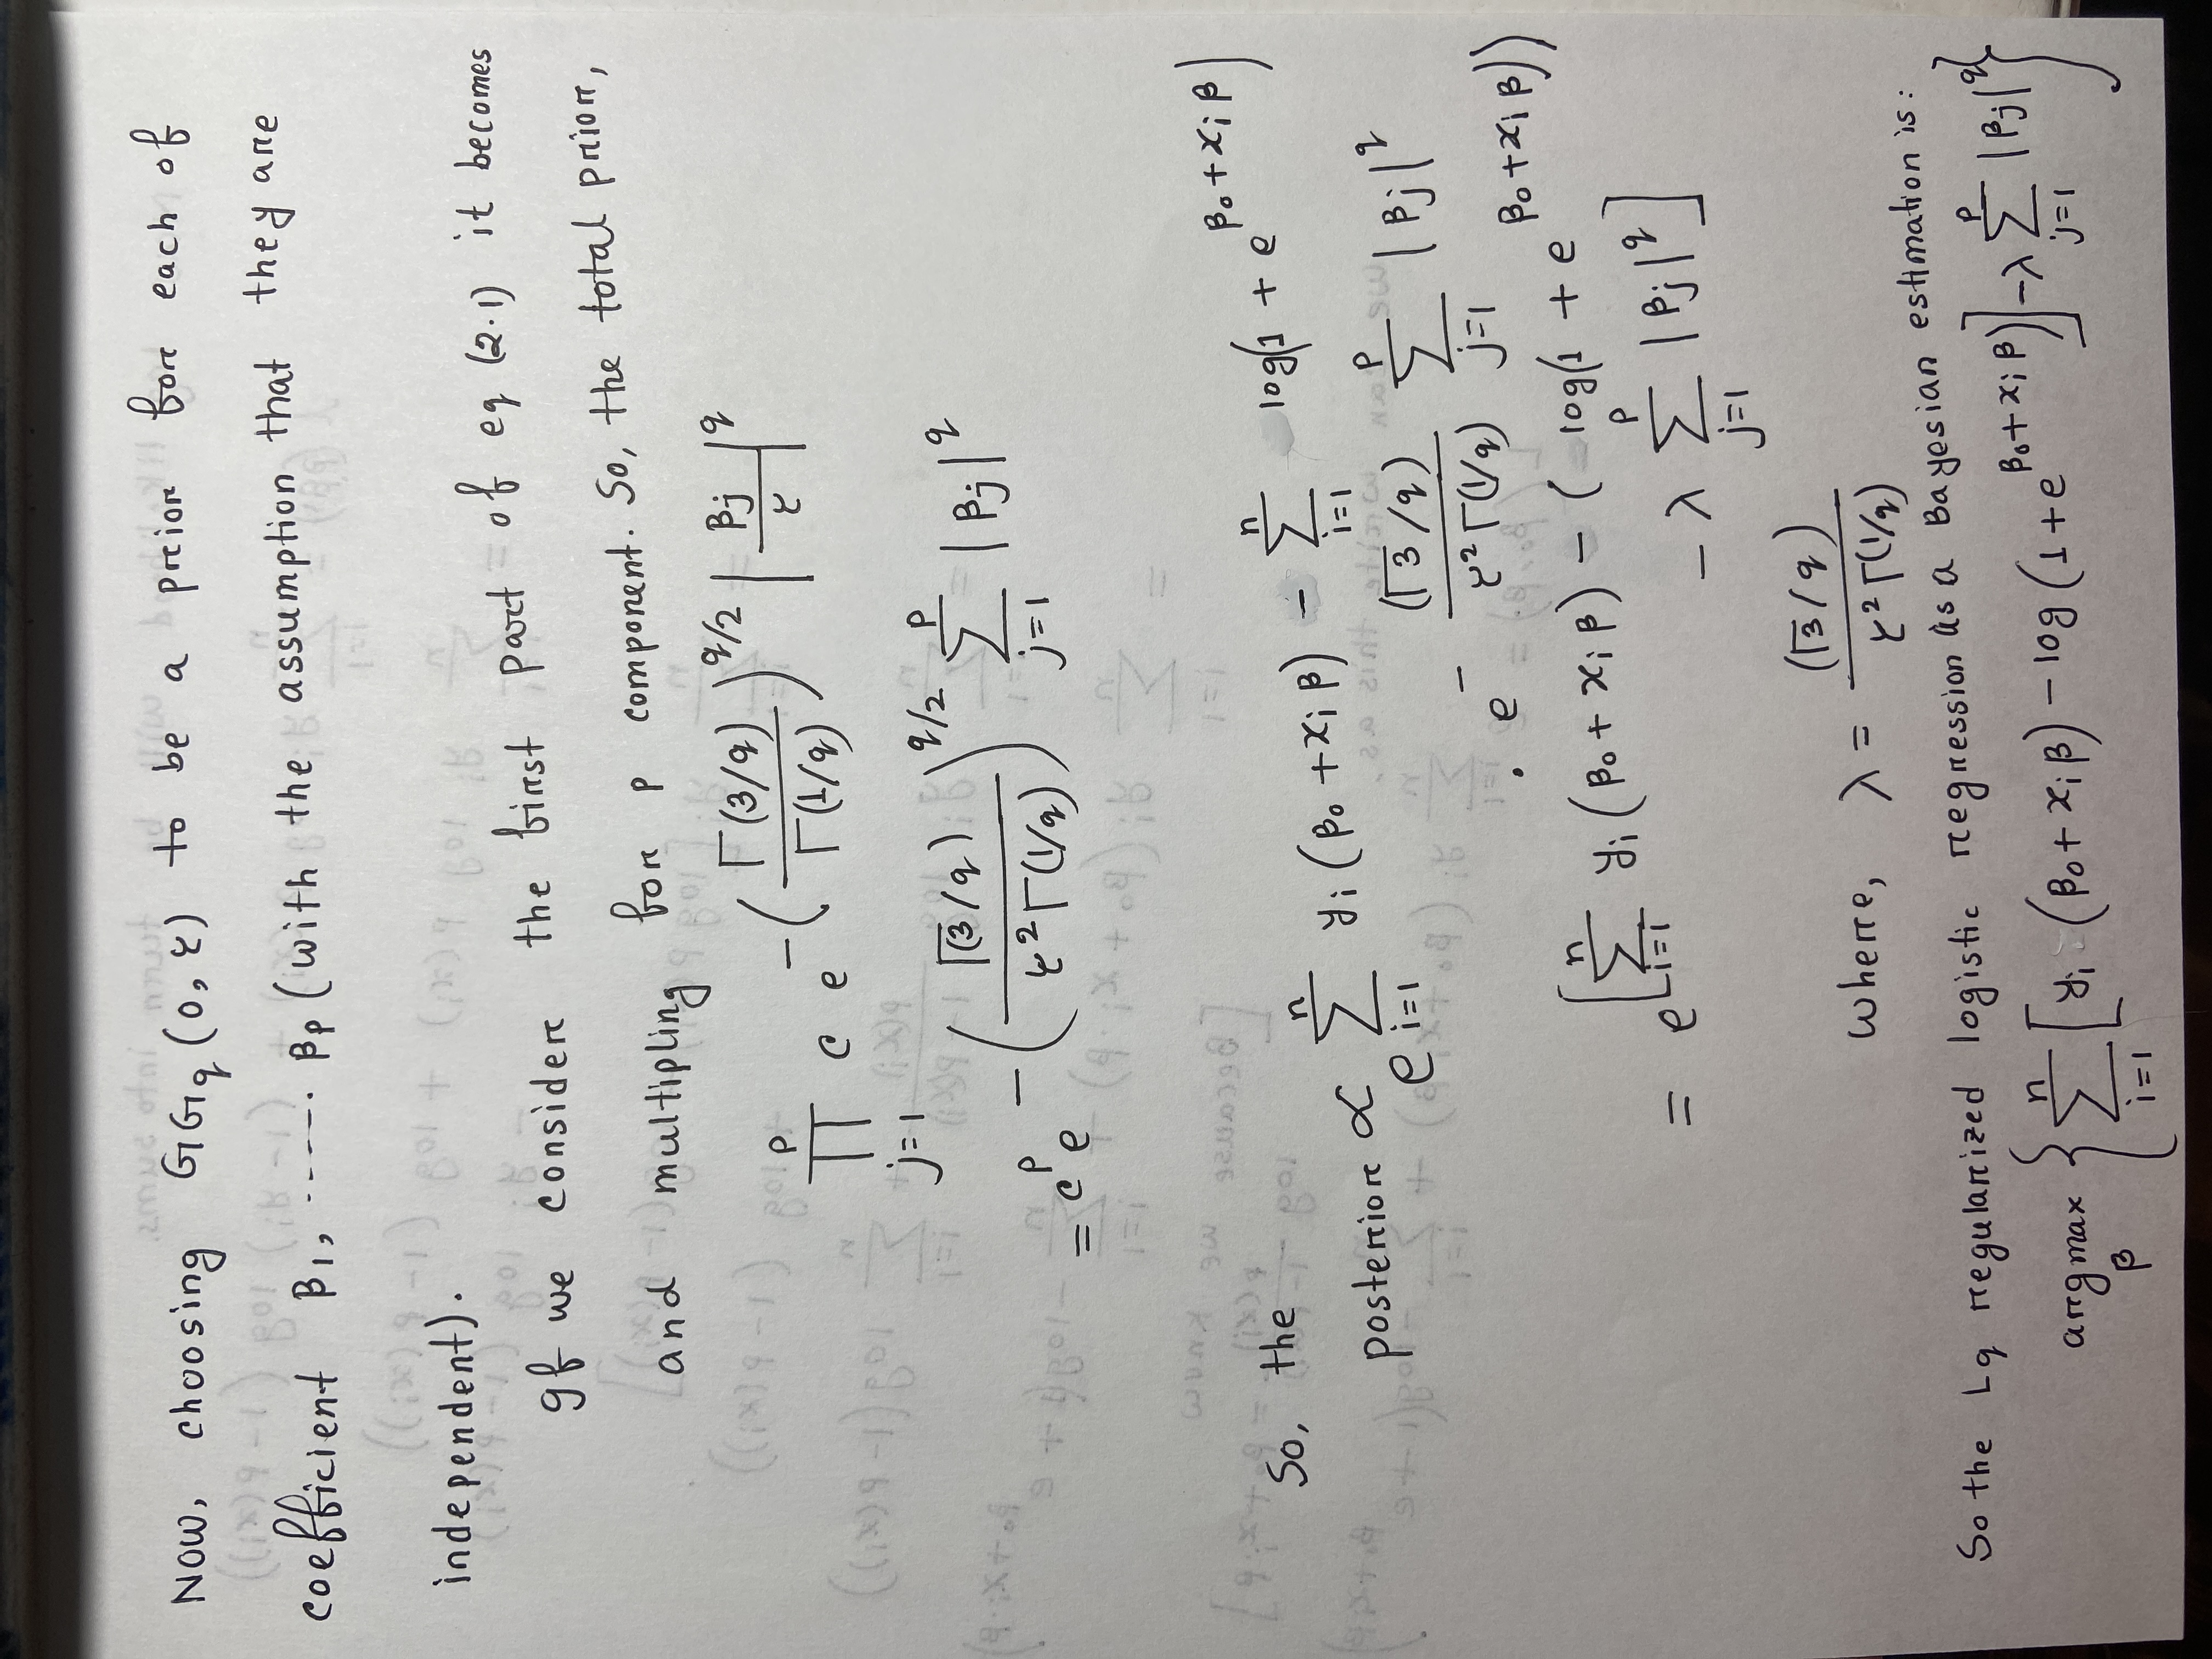 Now, choosing GG_q (0, τ) to be a prior for each of
coefficient β₁, ------. βp (with the assumption that they are
independent).
If we consider the first part of eq (2.1) it becomes
and multipling for p component. So, the total prior,
∏_{j=1}^{p} c e^{-(Γ(3/q) / Γ(1/q))^{q/2} |βj / τ|^q}
= c^p e^{-(Γ(3/q) / τ² Γ(1/q))^{q/2} ∑_{j=1}^{p} |βj|^q}
So, the
posterior ∝ e^{∑_{i=1}^{n} yi (β₀ + xi β) - ∑_{i=1}^{n} log(1 + e^{β₀ + xi β})}
. e^{- (Γ3/q) / τ² Γ(1/q) ∑_{j=1}^{p} |βj|^q}
= e^{[∑_{i=1}^{n} yi (β₀ + xi β) - ( log(1 + e^{β₀ + xi β}))
- λ ∑_{j=1}^{p} |βj|^q]}
where, λ = (Γ3/q) / τ² Γ(1/q)
So the Lq regularized logistic regression as a Bayesian estimation is:
argmax_β {∑_{i=1}^{n} [yi (β₀ + xi β) - log (1 + e^{β₀ + xi β})] - λ ∑_{j=1}^{p} |βj|^q}